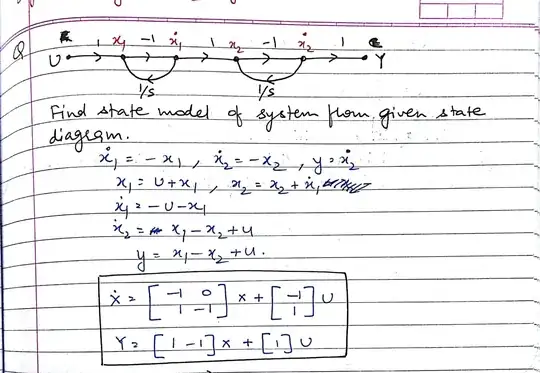 Q
1 x₁ -1 ẋ₁ 1 x₂ -1 ẋ₂ 1
U Y
1/s 1/s
Find state model of system from given state
diagram.
ẋ₁ = - x₁ , ẋ₂ = - x₂ , y = ẋ₂
x₁ = U + x₁ , x₂ = x₂ + ẋ₁
ẋ₁ = - U - x₁
ẋ₂ = x₁ - x₂ + u
y = x₁ - x₂ + u.
Ẋ = [ -1 0 ; 1 -1 ] x + [ -1 ; 1 ] U
Y = [ 1 -1 ] x + [ 1 ] U